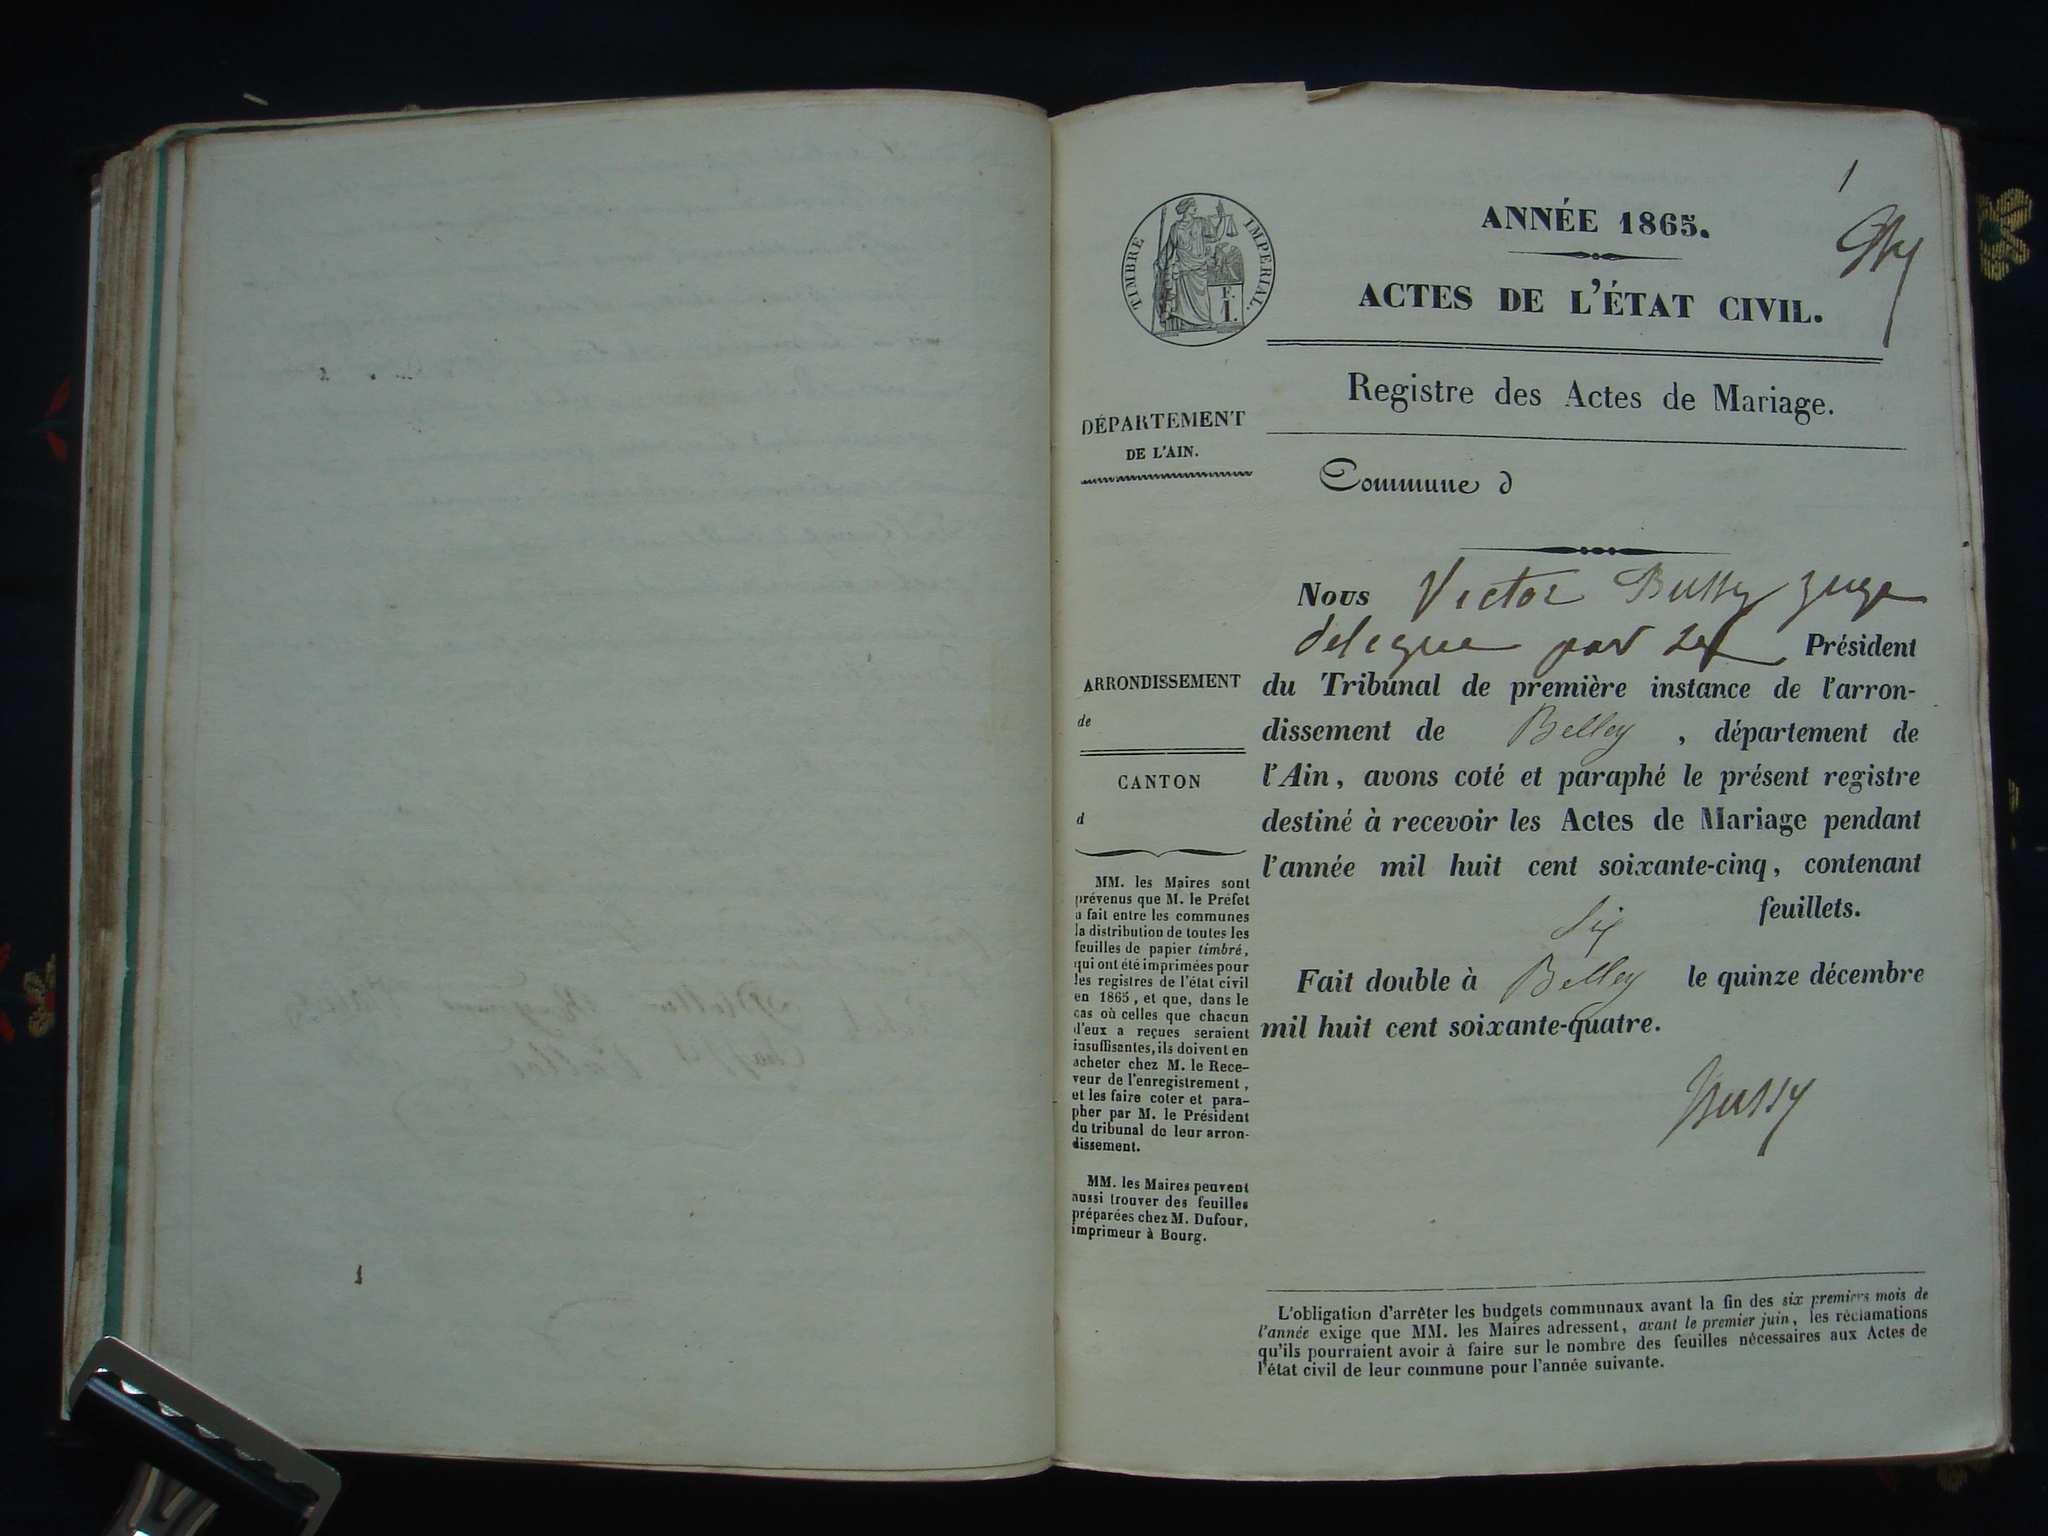 1
ANNÉE 1865.
TIMBRE IMPERIAL.
F.
1.
ACTES DE L'ÉTAT CIVIL.
Registre des Actes de Mariage.
DÉPARTEMENT
DE L'AIN.
Commune d
ARRONDISSEMENT
de
CANTON
d
MM. les Maires sont
prévenus que M. le Préfet
a fait entre les communes
la distribution de toutes les
feuilles de papier timbré,
qui ont été imprimées pour
les registres de l'état civil
en 1865, et que, dans le
cas où celles que chacun
d'eux a reçues seraient
insuffisantes, ils doivent en
acheter chez M. le Rece-
veur de l'enregistrement,
et les faire coter et para-
pher par M. le Président
du tribunal de leur arron-
dissement.
MM. les Maires peuvent
aussi trouver des feuilles
préparées chez M. Dufour,
imprimeur à Bourg.
Nous Victor Bussy juge
delegue par le Président
du Tribunal de première instance de l'arron-
dissement de Belley, département de
l'Ain, avons coté et paraphé le présent registre
destiné à recevoir les Actes de Mariage pendant
l'année mil huit cent soixante-cinq, contenant
six feuillets.
Fait double à Belley le quinze décembre
mil huit cent soixante-quatre.
Bussy
L'obligation d'arrêter les budgets communaux avant la fin des six premiers mois de
l'année exige que MM. les Maires adressent, avant le premier juin, les réclamations
qu'ils pourraient avoir à faire sur le nombre des feuilles nécessaires aux Actes de
l'état civil de leur commune pour l'année suivante.